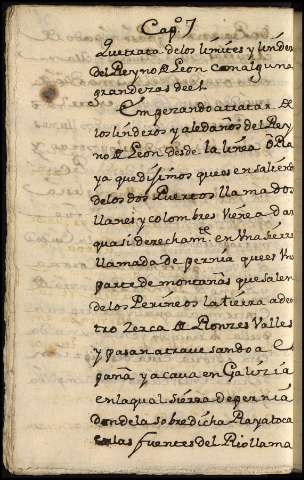 Capº 7
Que trata delos limites y linderos
del Reyno de Leon con alguna
grandezas deel.
Empezando atratar de
los linderos y aledaños del Rey
no de Leon desde la linea o Ra
ya que disimos que es en saliente
de los dos Puertos llamados
llanes y colombres Viene a dar
quasi derecham.te en Vna sierra
llamada de pernia que es Vna
parte de montañas que salen
de los Perineos la tierra aden
tro Zerca de Ronzes Valles
y pasan atrauesando a Es
paña y acaua en Galizia
en la qual sierra de pernia
donde la sobre dicha Raya toca
en las fuentes del Rio llama